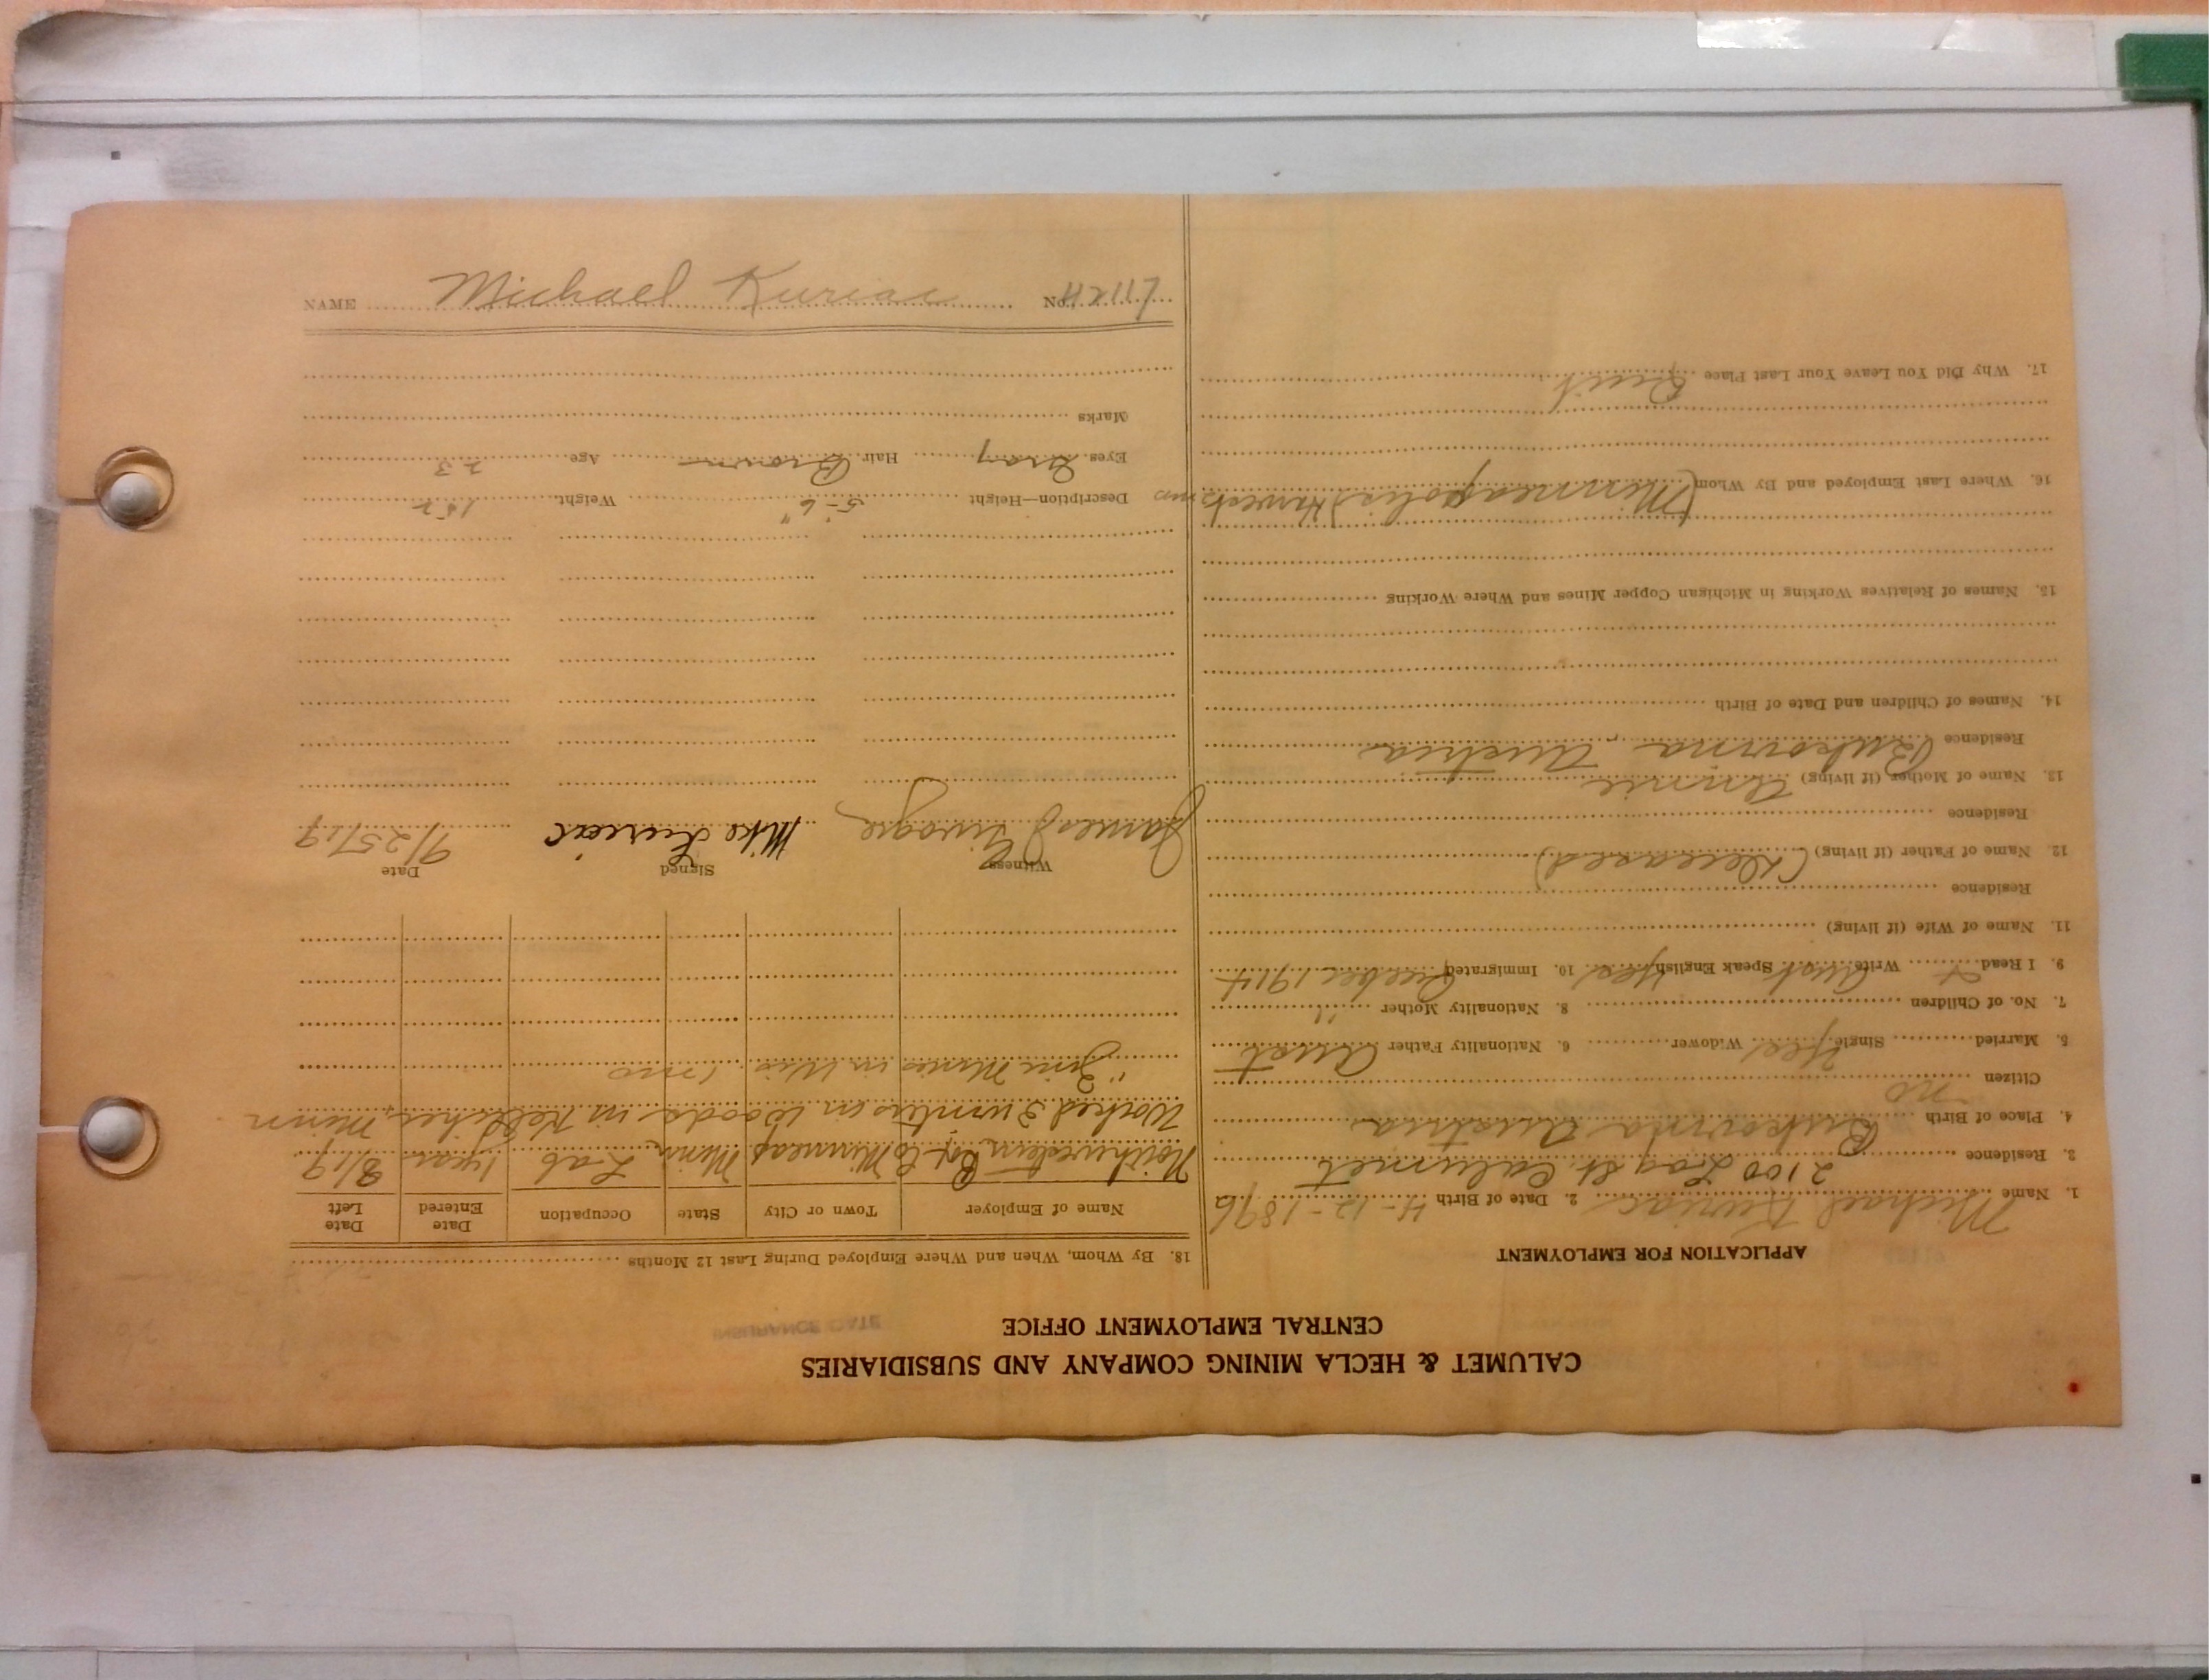 CALUMET & HECLA MINING COMPANY AND SUBSIDIARIES
CENTRAL EMPLOYMENT OFFICE
APPLICATION FOR EMPLOYMENT
1. Name Michael Kuriac 2. Date of Birth 4-12-1896
3. Residence 2100 Log St. Calumet
4. Place of Birth Bukovina Austria
Citizen no
5. Married Single Yes Widower 6. Nationality Father Aust
7. No. of Children 8. Nationality Mother "
9. I Read & Write Aust Speak English Yes 10. Immigrated Quebec 1914
11. Name of Wife (if living)
Residence
12. Name of Father (if living) (Deceased)
Residence
13. Name of Mother (if living) Annie
Residence Bukovina, Austria
14. Names of Children and Date of Birth
15. Names of Relatives Working in Michigan Copper Mines and Where Working
16. Where Last Employed and By Whom (Minneapolis) Harvest
17. Why Did You Leave Your Last Place Quit
18. By Whom, When and Where Employed During Last 12 Months
Name of Employer Town or City State Occupation Date Entered Date Left
Northwestern Co Minneap Minn Lab 1 year 8/19
Worked 2 winters in Woods in Kelliher, Minn
" Mines in Wis 1 mo
Witness Signed Date
James Mike Kuriac 9/25/19
Description—Height 5-6" Weight 152
Eyes Gray Hair Brown Age 23
Marks
NAME Michael Kuriac No. 42117
INSURANCE DATE